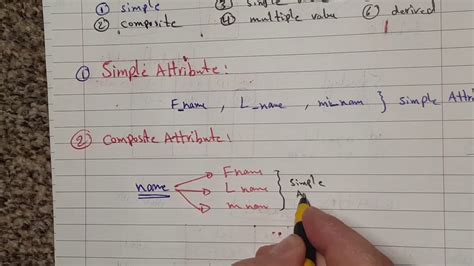 ① simple ③ single
② composite ④ multiple value ⑥ derived
① Simple Attribute:
F_name, L_name, mi_nam } simple Attri
② Composite Attribute:
name Fname } simple
L name A
m nam